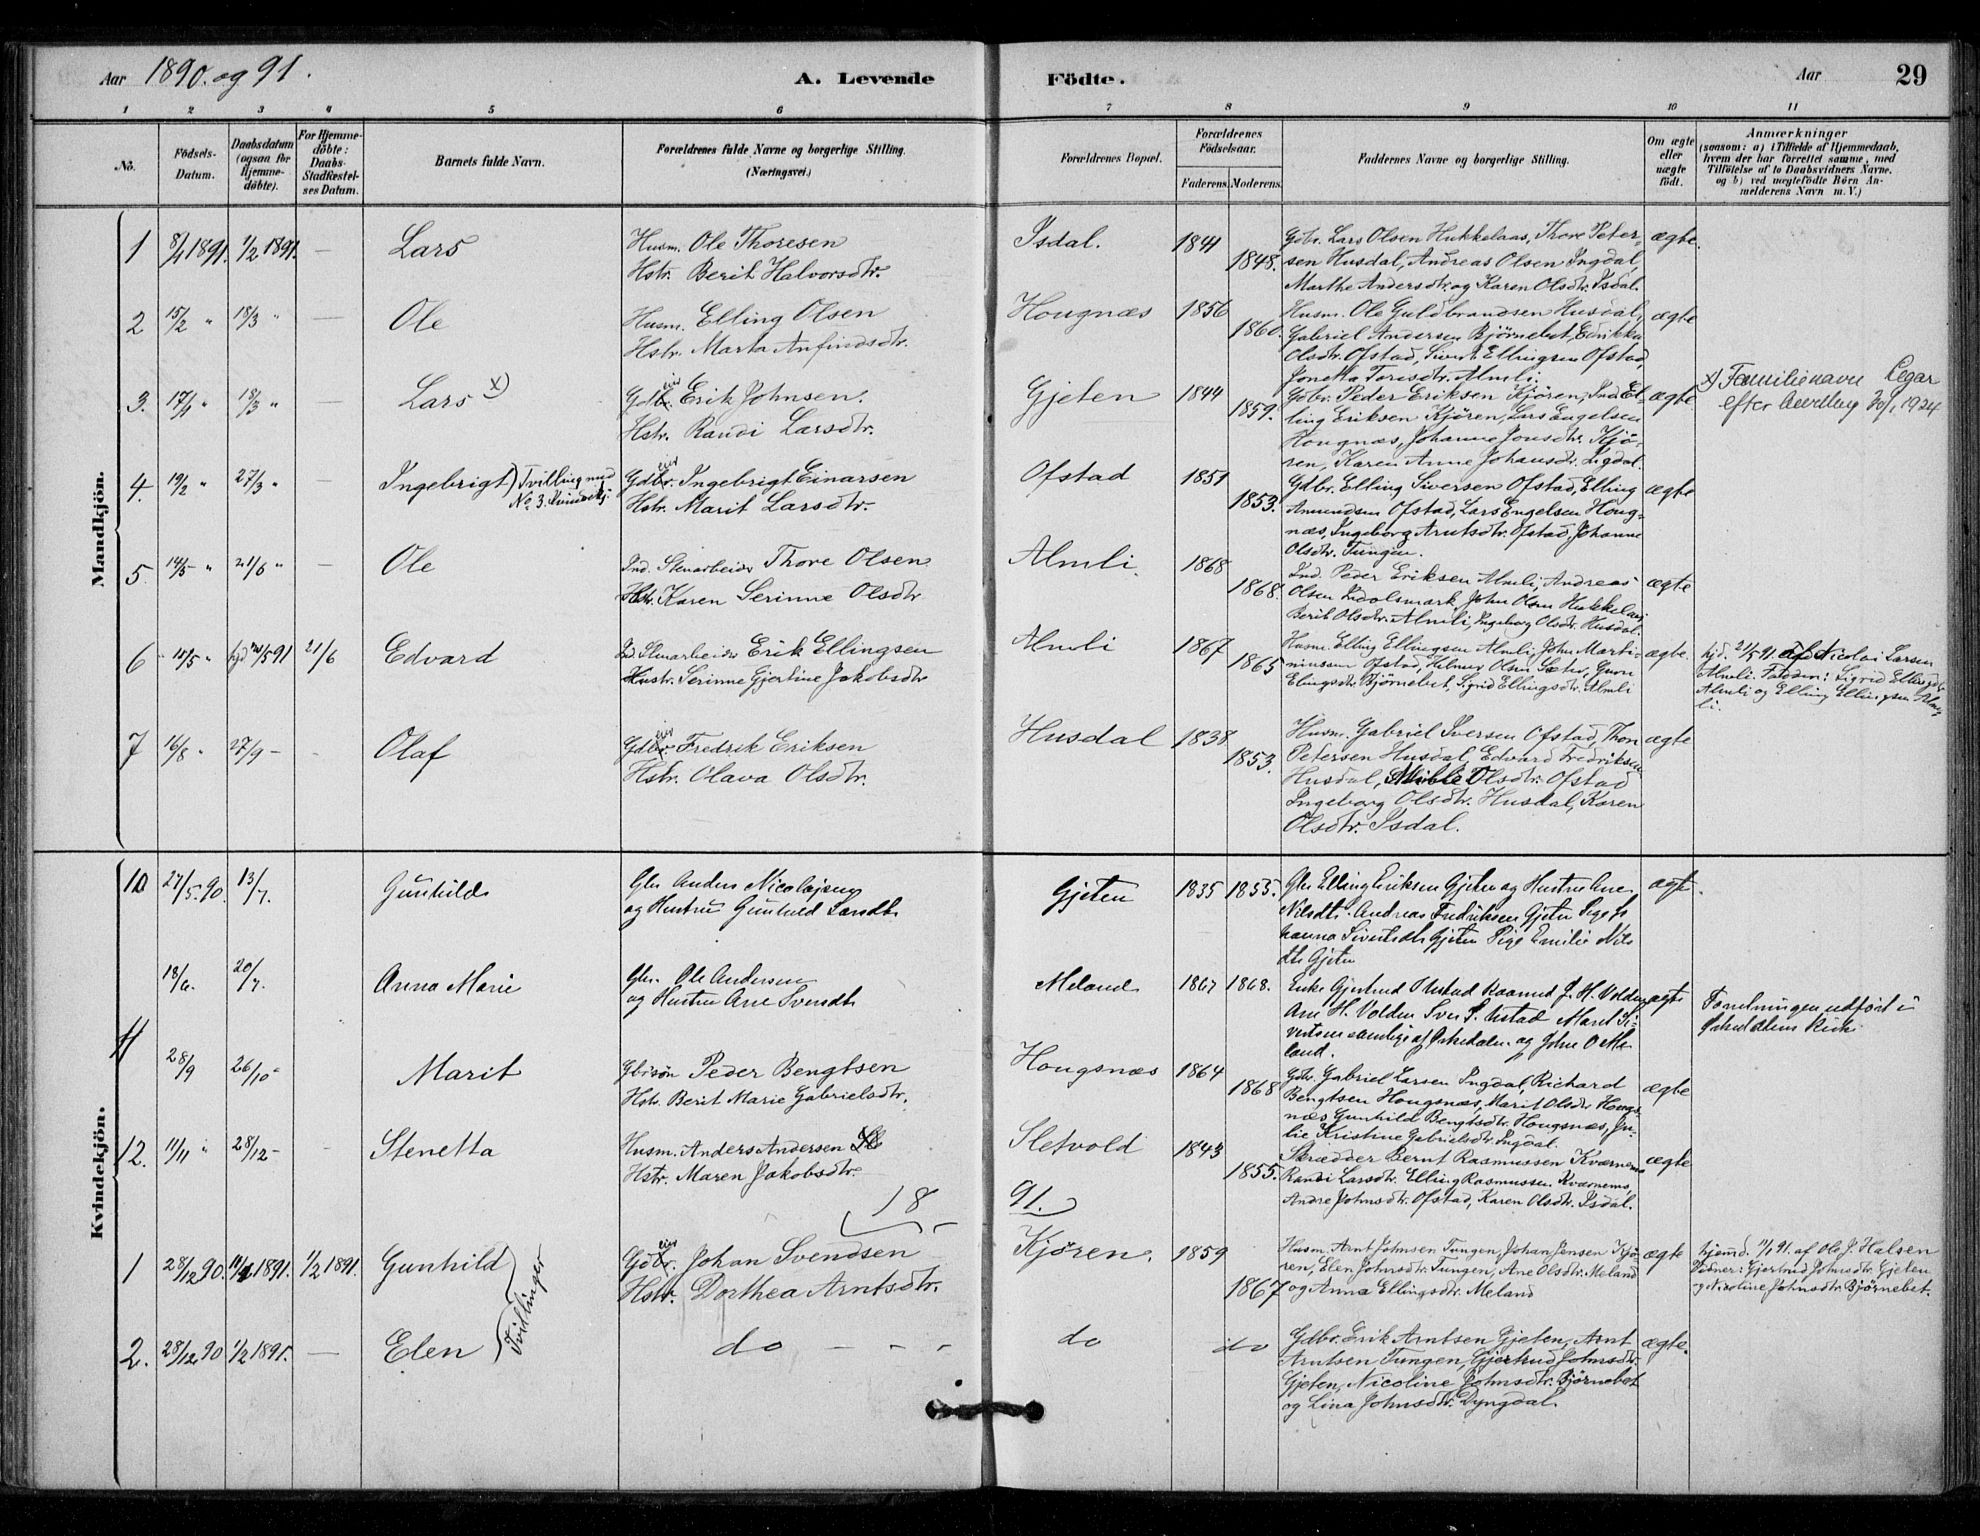 Aar 1890. og 91.
A. Levende Födte.
Aar 29
1 2 3 4 5 6 7 8 9 10 11
No.
Födsels-Datum.
Daabsdatum (ogsaa for Hjemmedøbte).
For Hjemmedöbte: Daabs-Stadfæstelses Datum.
Barnets fulde Navn.
Forældrenes fulde Navne og borgerlige Stilling.
(Næringsvei.)
Forældrenes Bopæl.
Forældrenes Födselsaar.
Faderens. Moderens.
Faddernes Navne og borgerlige Stilling.
Om ægte eller uægte födt.
Anmærkninger
(saasom: a) i Tilfælde af Hjemmedaab, hvem der har forrettet samme, med Tilföielse af to Daabsvidners Navne, og b) ved uægtefödte Börn Anmelderens Navn m. V.)
Mandkjön.
1 8/1 1891. 1/2 1891. — Lars
Husm. Ole Thoresen
Hstr. Berit Halvorsdtr.
Isdal. 1841 1848.
Gdbr. Lars Olsen Hukkelaas, Thore Peter-
sen Husdal, Andreas Olsen Ingdal,
Marthe Andersdtr. og Karen Olsdtr. Isdal.
ægte.
2 15/2 " 18/3 " — Ole
Husm. Elling Olsen
Hstr. Marta Anfindsdtr.
Hougnæs 1856 1860.
Husm. Ole Guldbrandsen Husdal,
Gabriel Andersen Bjørnebet, Erikka
Olsdtr. Ofstad, Sivert Ellingsen Ofstad,
Jonetta Toresdtr. Almli.
ægte
3. 17/1 " 18/3 " — Lars x)
Gdbr. eier Erik Johnsen.
Hstr. Randi Larsdtr.
Gjeten 1844 1859.
Gdbr. Peder Eriksen Kjören, Ind. El-
ling Eriksen Kjören, Lars Engelsen
Hougnæs, Johanne Jonsdtr. Kjö-
ren, Karen Anne Johansdtr.
ægte
x) Familienavn
efter 1924
4. 19/2 " 27/3 " — Ingebrigt) Tvilling med
No 3. Kvindekj.
Gdbr. eier Ingebrigt Einarsen
Hstr. Marit Larsdtr.
Ofstad 1851 1853.
Gdbr. Elling Siversen Ofstad, Elling
Amundsen Ofstad, Lars Engelsen Houg-
næs, Ingeborg Arntsdtr. Ofstad, Johanne
Olsdtr. Tungen.
ægte
5. 14/5 " 21/6 " — Ole
Ind. Stenarbeider Thore Olsen
Hstr. Karen Serinne Olsdtr
Almli. 1868 1868.
Ind. Peder Eriksen Almli, Andreas
Olsen John Olsen Hukkelaas
Berit Olsdtr. Almli, Ingeborg Olsdtr. Husdal.
ægte
6 15/5 " hjd 21/5 91 21/6 Edvard
Ind. Stenarbeider Erik Ellingsen
Hustr. Serinne Gjertine Jakobsdtr
Almli 1867 1865
Husm. Elling Ellingsen Almli, John Marti-
niussen Ofstad, Helmer Olsen Sæter, Guru
Elingsdtr. Bjørnebet, Sigrid Ellingsdtr. Almli
ægte.
hjd. 21/5 91. af Nicolai Larsen
Almli. Faddere: Sigrid Ellingsdtr
Almli og Elling Ellingsen Alm-
li.
7 16/8 " 27/9 - - Olaf
Gdbr. eier Fredrik Eriksen
Hstr. Olava Olsdtr.
Husdal 1838 1853.
Husm. Gabriel Iversen Ofstad, Thon
Petersen Husdal, Edvard Fredriksen
Husdal, Olsdtr. Ofstad
Ingeborg Olsdtr. Husdal, Karen
Olsdtr. Isdal.
ægte
Kvindekjön.
10 27/5. 90. 13/7. Gunhild
Gbr Anders Nicolajsen
og Hustru Gunhild Larsdt.
Gjeten 1835 1855.
Gbr Elling Eriksen Gjeten og Hustru Ane
Nilsdtr. Andreas Fredriksen Gjeten Pige Jo
hanna Sivertsdtr Gjeten Pige Emilie Nils
dtr Gjeten
ægte.
18/6. 20/7. Anna Marie
Gbr. Ole Andersen
og Hustru Ane Svendt.
Meland 1867 1868.
Enke Gjertrud Ustad Rasmus J. H. Volden
Ane H. Volden Iver S. Ustad Marit Si-
vertsen samtlige af Orkedalen og John O. Me-
land.
ægte
Forretningen udført i
Orkedalens Kirke
11
28/9 26/10- Marit
Gbrsøn Peder Bengtsen
Hstr. Berit Marie Gabrielsdtr.
Hougsnæs 1864 1868
Gdbr. Gabriel Larsen Ingdal, Richard
Bengtsen Hougsnæs, Marit Olsdtr Hougs-
næs Gunhild Bengtsdtr. Hougsnæs, Ju-
lie Kristine Gabrielsdtr. Ingdal.
ægte
12. 11/11 " 28/12- - Stenetta
Husm. Anders Andersen
Hstr. Maren Jakobsdtr.
Sletvold 1843 1855.
Skrædder Bernt Rasmussen Kværnem
Randi Larsdtr. Elling Rasmussen Kværnems,
Andre Johnsdtr. Ofstad, Karen Olsdtr. Isdal.
ægte
18 91.
1 28/12 90. 11/1 1891. 1/2 1891. Gunhild
Gdbr. eier Johan Svendsen
Hstr. Dorthea Arntsdtr.
Kjören. 1859 1867
Husm. Arnt Johnsen Tungen, Johan Jensen Kjö-
ren, Elen Johnsdtr. Tungen, Ane Olsdtr. Meland
og Anna Ellingsdtr. Meland
ægte
hjemd. 11/1 91. af Ole J. Halsen
Vidner: Gjertrud Johnsdtr. Gjeten
og Nicoline Johnsdtr. Bjørnebet.
Tvillinger
2. 28/12 90 1/2 1891. — Elen
do - - - do do
Gdbr. Erik Arntsen Gjeten, Arnt
Arntsen Tungen, Gjertrud Johnsdtr.
Gjeten, Nicoline Johnsdtr. Bjørnebet
og Lina Johnsdtr. Dyngdal.
ægte.